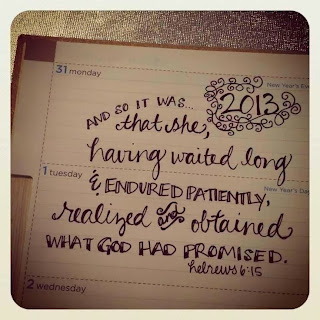 31 monday
New Year's Ev
2013
AND SO IT WAS...
that she,
having waited long
1 tuesday
New Year's Day
& ENDURED PATIENTLY,
realized and obtained
WHAT GOD HAD PROMISED.
hebrews 6:15
2 wednesday